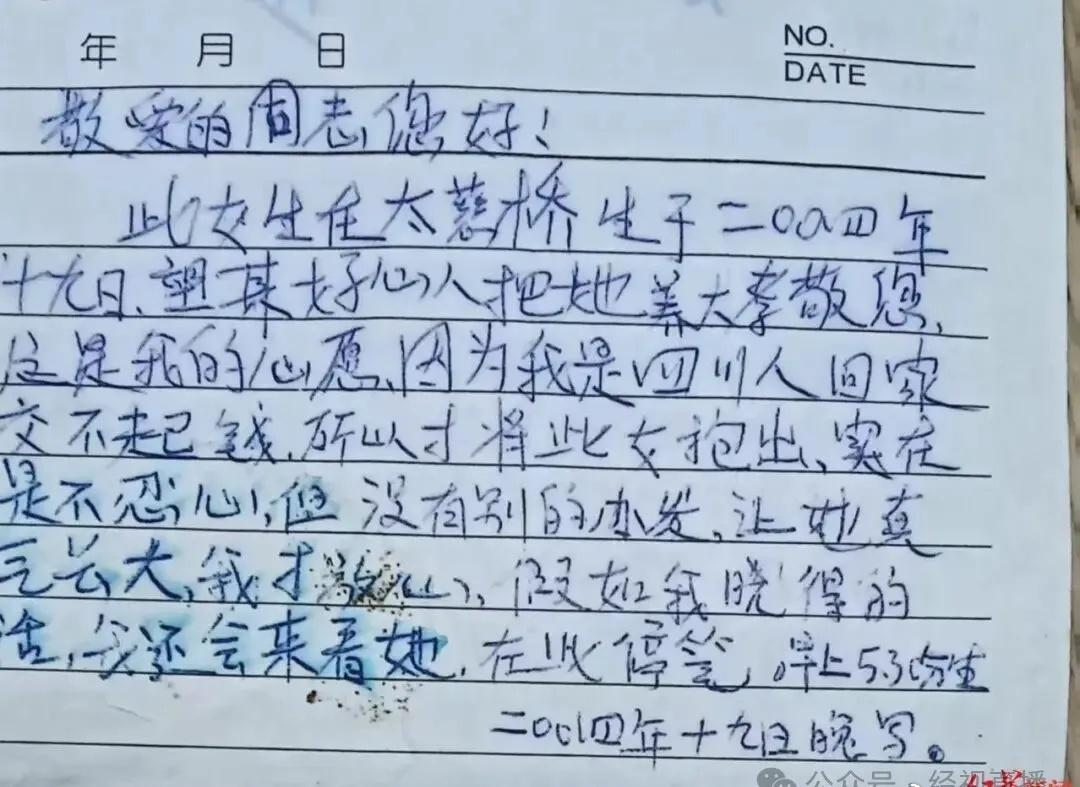 年 月 日
NO.
DATE
敬爱的同志,您好!
此女生在太慈桥 生于二00四年
十九日、望某好心人把她养大孝敬您、
这是我的心愿、因为我是四川人回家
交不起钱、所以才将此女抱出、实在
是不忍心,但没有别的办发、让她真
气长大,我才放心、假如我晓得的
话,我还会来看她、在此停笔,早上5.30分生
二00四年十九日晚写。
公众号·经视直播